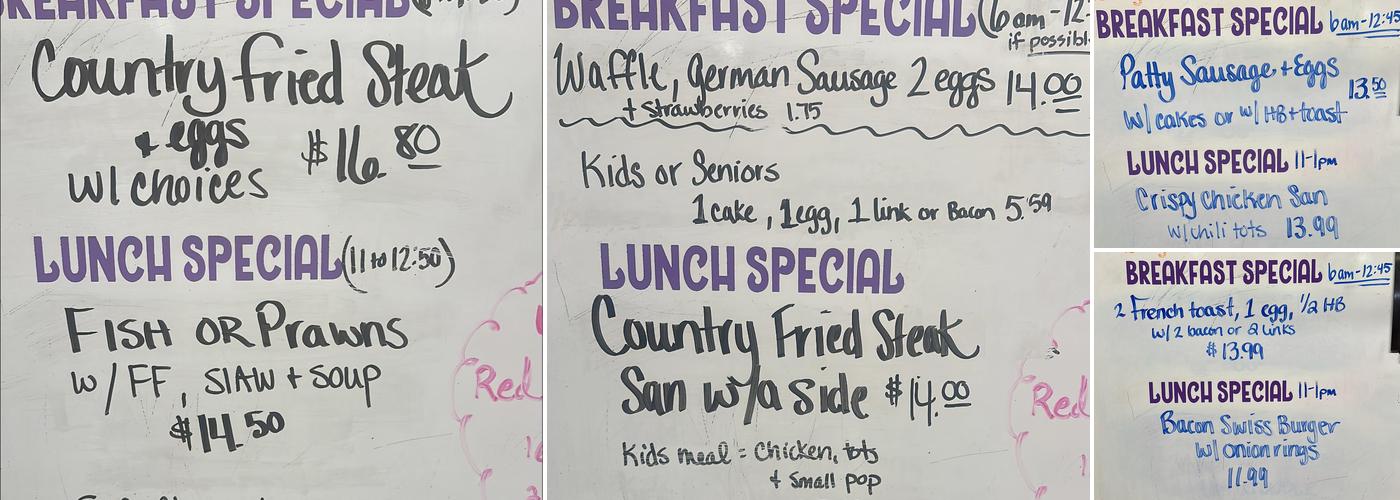 BREAKFAST SPECIAL
Country Fried Steak
+ eggs
w/ choices
$16.80
LUNCH SPECIAL (11 to 12:50)
FISH OR Prawns
w/ FF, SlAW + SOUP
$14.50
Red
BREAKFAST SPECIAL (6am-12
if possibl
Waffle, German Sausage 2 eggs 14.00
+ Strawberries 1.75
Kids or Seniors
1 cake, 1 egg, 1 link or Bacon 5.59
LUNCH SPECIAL
Country Fried Steak
San w/a side $14.00
Kids meal = Chicken, tots
+ Small pop
Red
BREAKFAST SPECIAL 6am-12:45
Patty Sausage + Eggs
13.50
w/ cakes or w/ HB + toast
LUNCH SPECIAL 11-1pm
Crispy Chicken San
w/ chili tots 13.99
BREAKFAST SPECIAL 6am-12:45
2 French toast, 1 egg, 1/2 HB
w/ 2 bacon or 2 links
$13.99
LUNCH SPECIAL 11-1pm
Bacon Swiss Burger
w/ onion rings
11.99